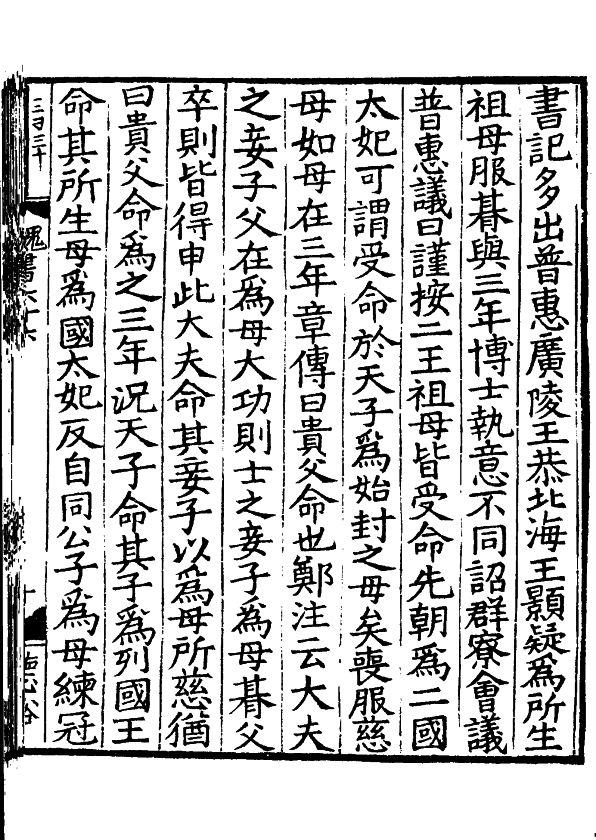 書記多出普惠廣陵王恭北海王顥疑爲所生
祖母服朞與三年博士執意不同詔群寮會議
普惠議曰謹按二王祖母皆受命先朝爲二國
太妃可謂受命於天子爲始封之母矣喪服慈
母如母在三年章傳曰貴父命也鄭注云大夫
之妾子父在爲母大功則士之妾子爲母朞父
卒則皆得申此大夫命其妾子以爲母所慈猶
曰貴父命爲之三年况天子命其子爲列國王
命其所生母爲國太妃反自同公子爲母練冠
魏書六十六